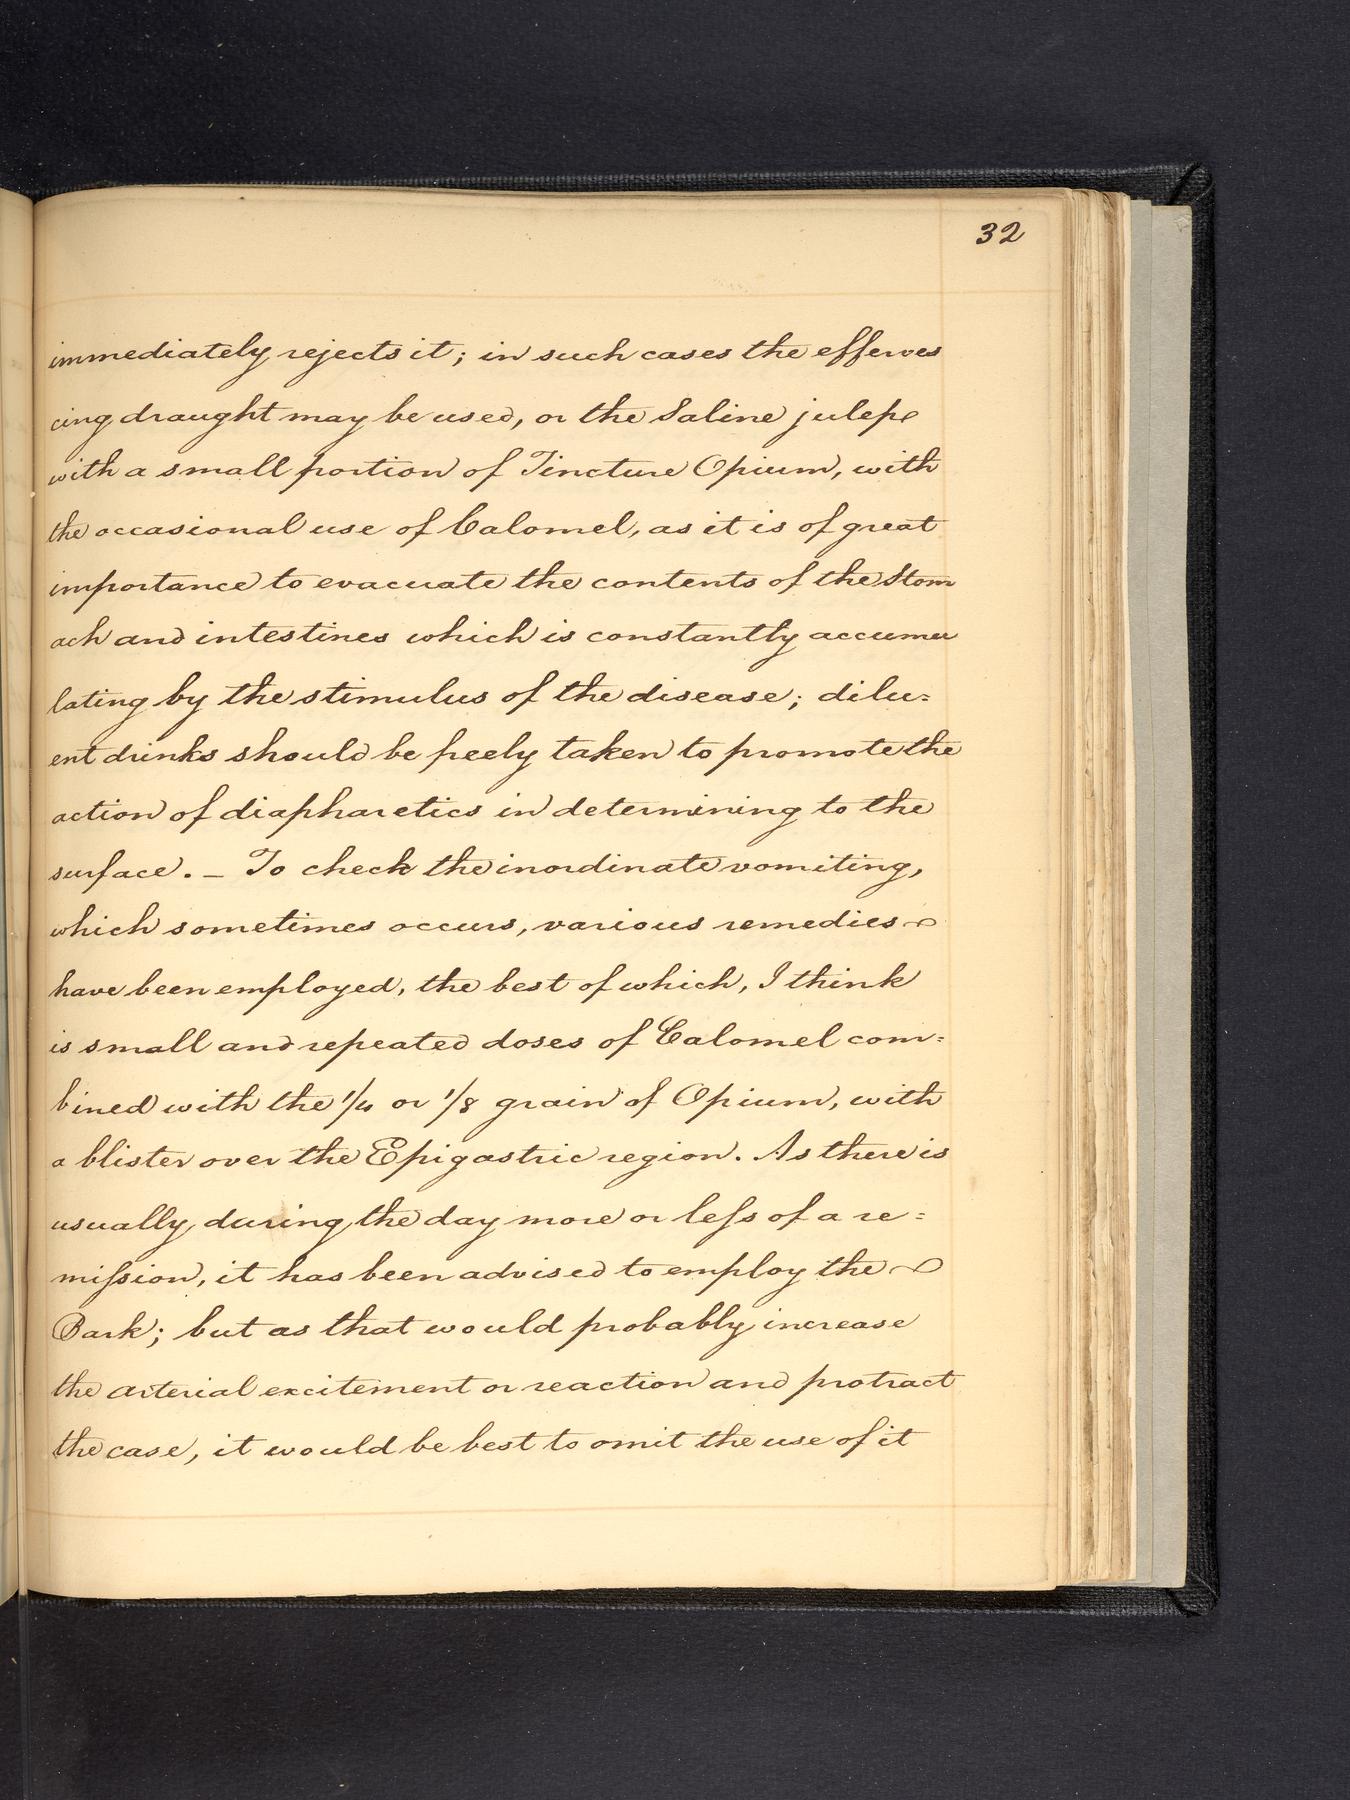 32
immediately rejects it; in such cases the efferves
cing draught may be used, or the Saline julep
with a small portion of Tincture Opium, with
the occasional use of Calomel, as it is of great
importance to evacuate the contents of the Stom
ach and intestines which is constantly accumu
lating by the stimulus of the disease; dilu=
ent drinks should be freely taken to promote the
action of diapharetics in determining to the
surface. _ To check the inordinate vomiting,
which sometimes occurs, various remedies
have been employed, the best of which, I think
is small and repeated doses of Calomel com=
bined with the 1/4 or 1/8 grain of Opium, with
a blister over the Epigastric region. As there is
usually, during, the day more or leſs of a re=
miſsion, it has been advised to employ the
Bark; but as that would probably increase
the arterial excitement or reaction and protract
the case, it would be best to omit the use of it